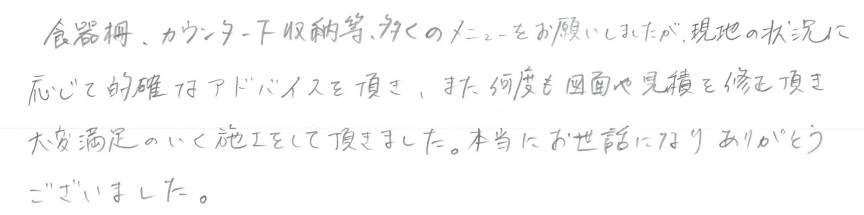 食器棚、カウンター下収納等、多くのメニューをお願いしましたが、現地の状況に
応じて的確なアドバイスを頂き、また何度も図面や見積を修正頂き
大変満足のいく施工をして頂きました。本当にお世話になりありがとう
ございました。